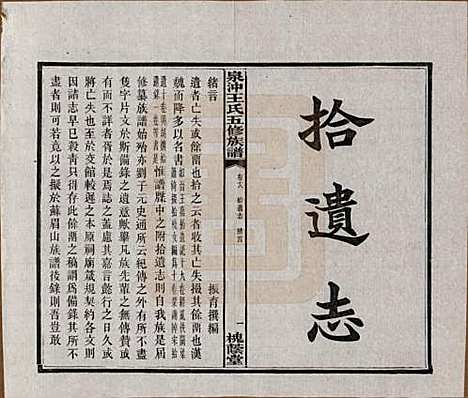 拾遺志
泉沖王氏五修族譜
拾遺志 緒言
一 槐蔭堂
緒言
振育撰編
遺者亡失或餘也拾之云者收其亡失撮其餘也漢
魏而降多以名書
惟譜中之附拾遺志則自我族是屆
修族譜始亦劉子元史通所云紀傳之外有所不盡
隻字片文於斯備錄之遺意歟畢凡族先輩之無傳贊或
有而不詳者胥於是志焉庶其嘉言懿行之日久或
將亡失也至於交館較遲之本原祠廟箴規契約各文則
因諸志早已殺青只此餘瀋之稿謂為備錄其所不
盡者則可若竟以之擬於蘇眉山族譜後錄則吾豈敢